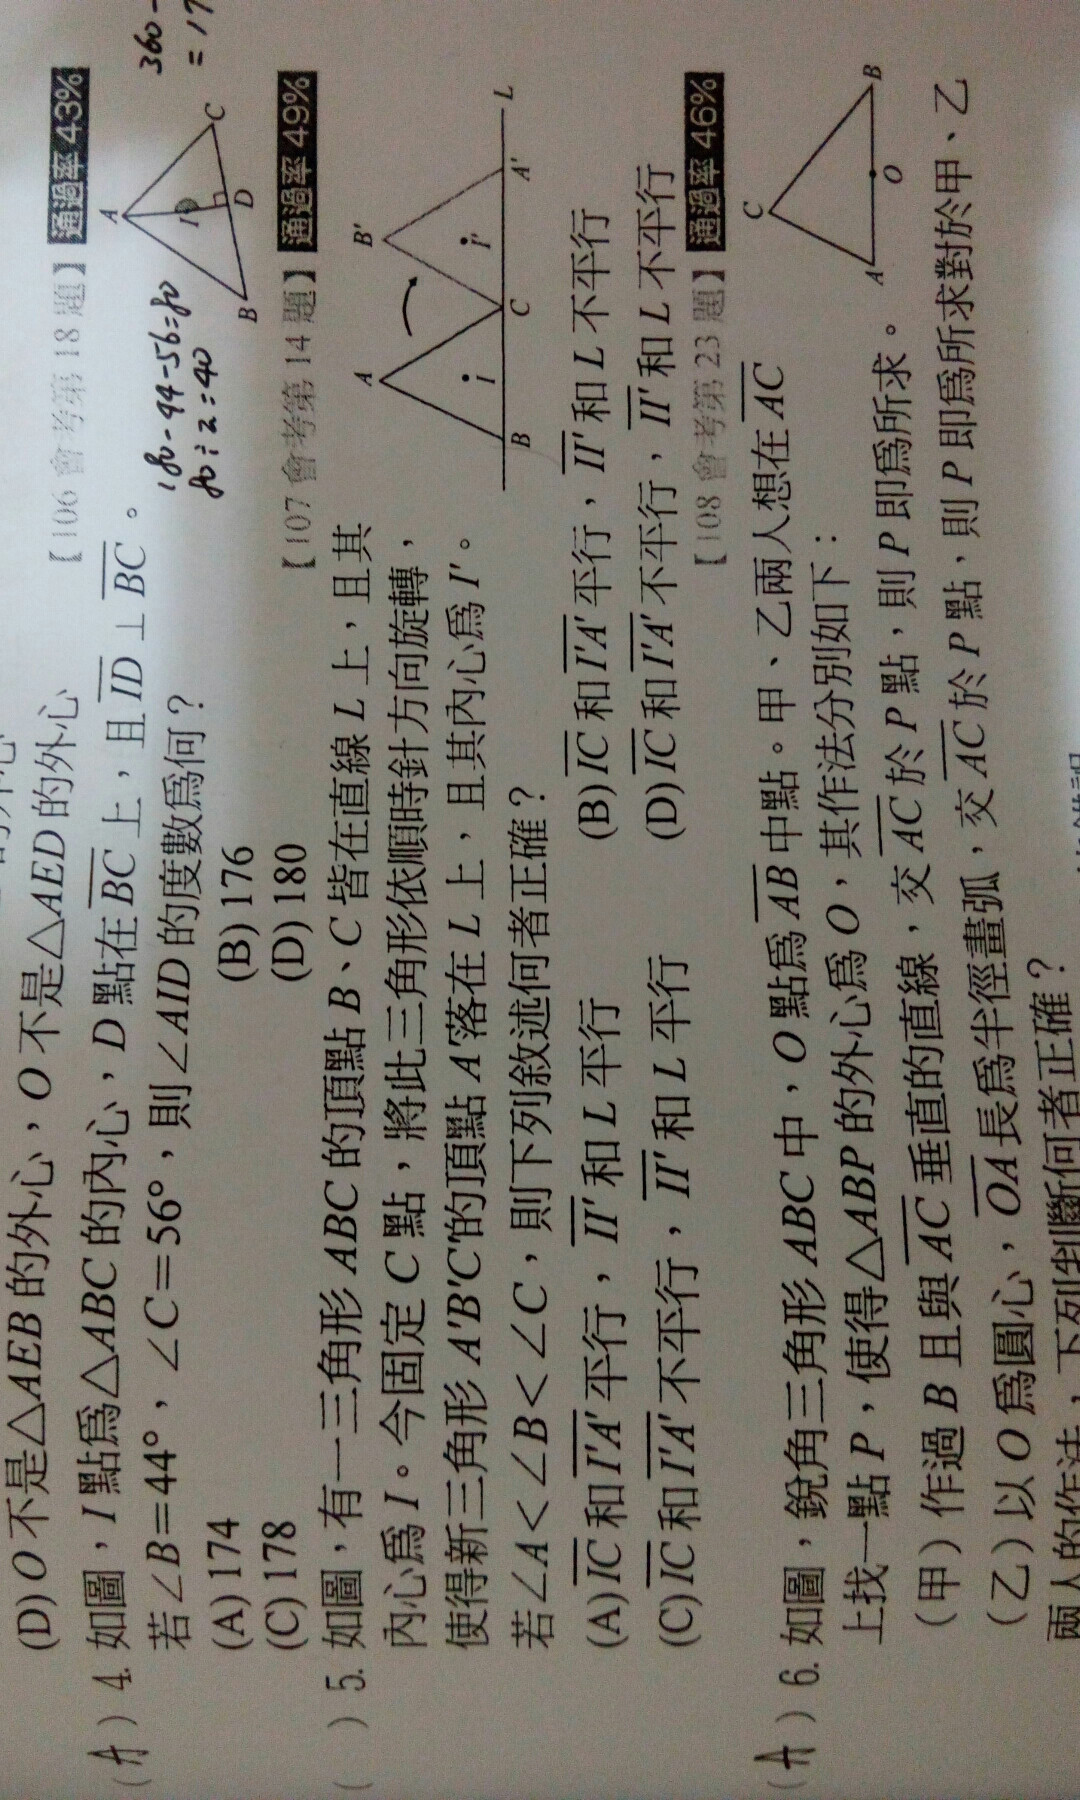 (D) O 不是△AEB 的外心，O 不是△AED 的外心
【106 會考第 18 題】 通過率 43%
( A ) 4. 如圖，I 點為△ABC 的內心，D 點在 BC 上，且 ID ⊥ BC。
若∠B＝44°，∠C＝56°，則∠AID 的度數為何？
(A) 174 (B) 176
(C) 178 (D) 180
180-44-56=80
80÷2=40
360-
A
I
B
D
C
【107 會考第 14 題】 通過率 49%
( ) 5. 如圖，有一三角形 ABC 的頂點 B、C 皆在直線 L 上，且其
內心為 I。今固定 C 點，將此三角形依順時針方向旋轉，
使得新三角形 A'B'C 的頂點 A' 落在 L 上，且其內心為 I'。
若∠A＜∠B＜∠C，則下列敘述何者正確？
(A) IC 和 I'A' 平行，II' 和 L 平行 (B) IC 和 I'A' 平行，II' 和 L 不平行
(C) IC 和 I'A' 不平行，II' 和 L 平行 (D) IC 和 I'A' 不平行，II' 和 L 不平行
A
B'
I
I'
B
C
A'
L
【108 會考第 23 題】 通過率 46%
( A ) 6. 如圖，銳角三角形 ABC 中，O 點為 AB 中點。甲、乙兩人想在 AC
上找一點 P，使得△ABP 的外心為 O，其作法分別如下：
（甲）作過 B 且與 AC 垂直的直線，交 AC 於 P 點，則 P 即為所求。
（乙）以 O 為圓心，OA 長為半徑畫弧，交 AC 於 P 點，則 P 即為所求
對於甲、乙
兩人的作法，下列判斷何者正確？
C
A
O
B